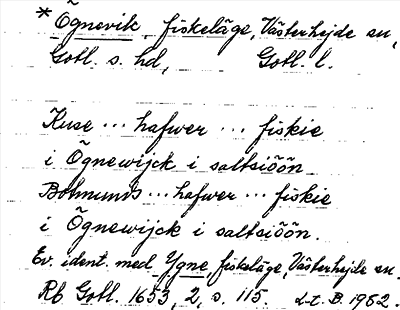 * Õgnevik, fiskeläge, Västerhejde sn,
Gotl. s. hd, Gotl. l.
Kuse ... hafwer ... fiskie
i Õgnewijck i saltsiöön
Botmunds ... hafwer ... fiskie
i Õgnewijck i saltsiöön.
Ev. ident. med Ygne fiskeläge, Västerhejde sn.
Rb Gotl. 1653, 2, s. 115. L-t. B. 1982.